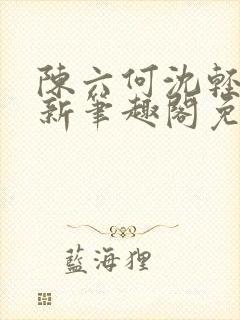 陳六何沈輕
新筆趣閣免
藍海狸